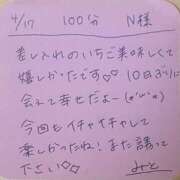 4/17 100分 N様
差し入れのいちご美味しくて
嬉しかったです♡♡ 10日ぶりに
会えて幸せだよー(๑'ω'๑)
今回もイチャイチャして
楽しかったね!また誘って
ださい♡♡ みと